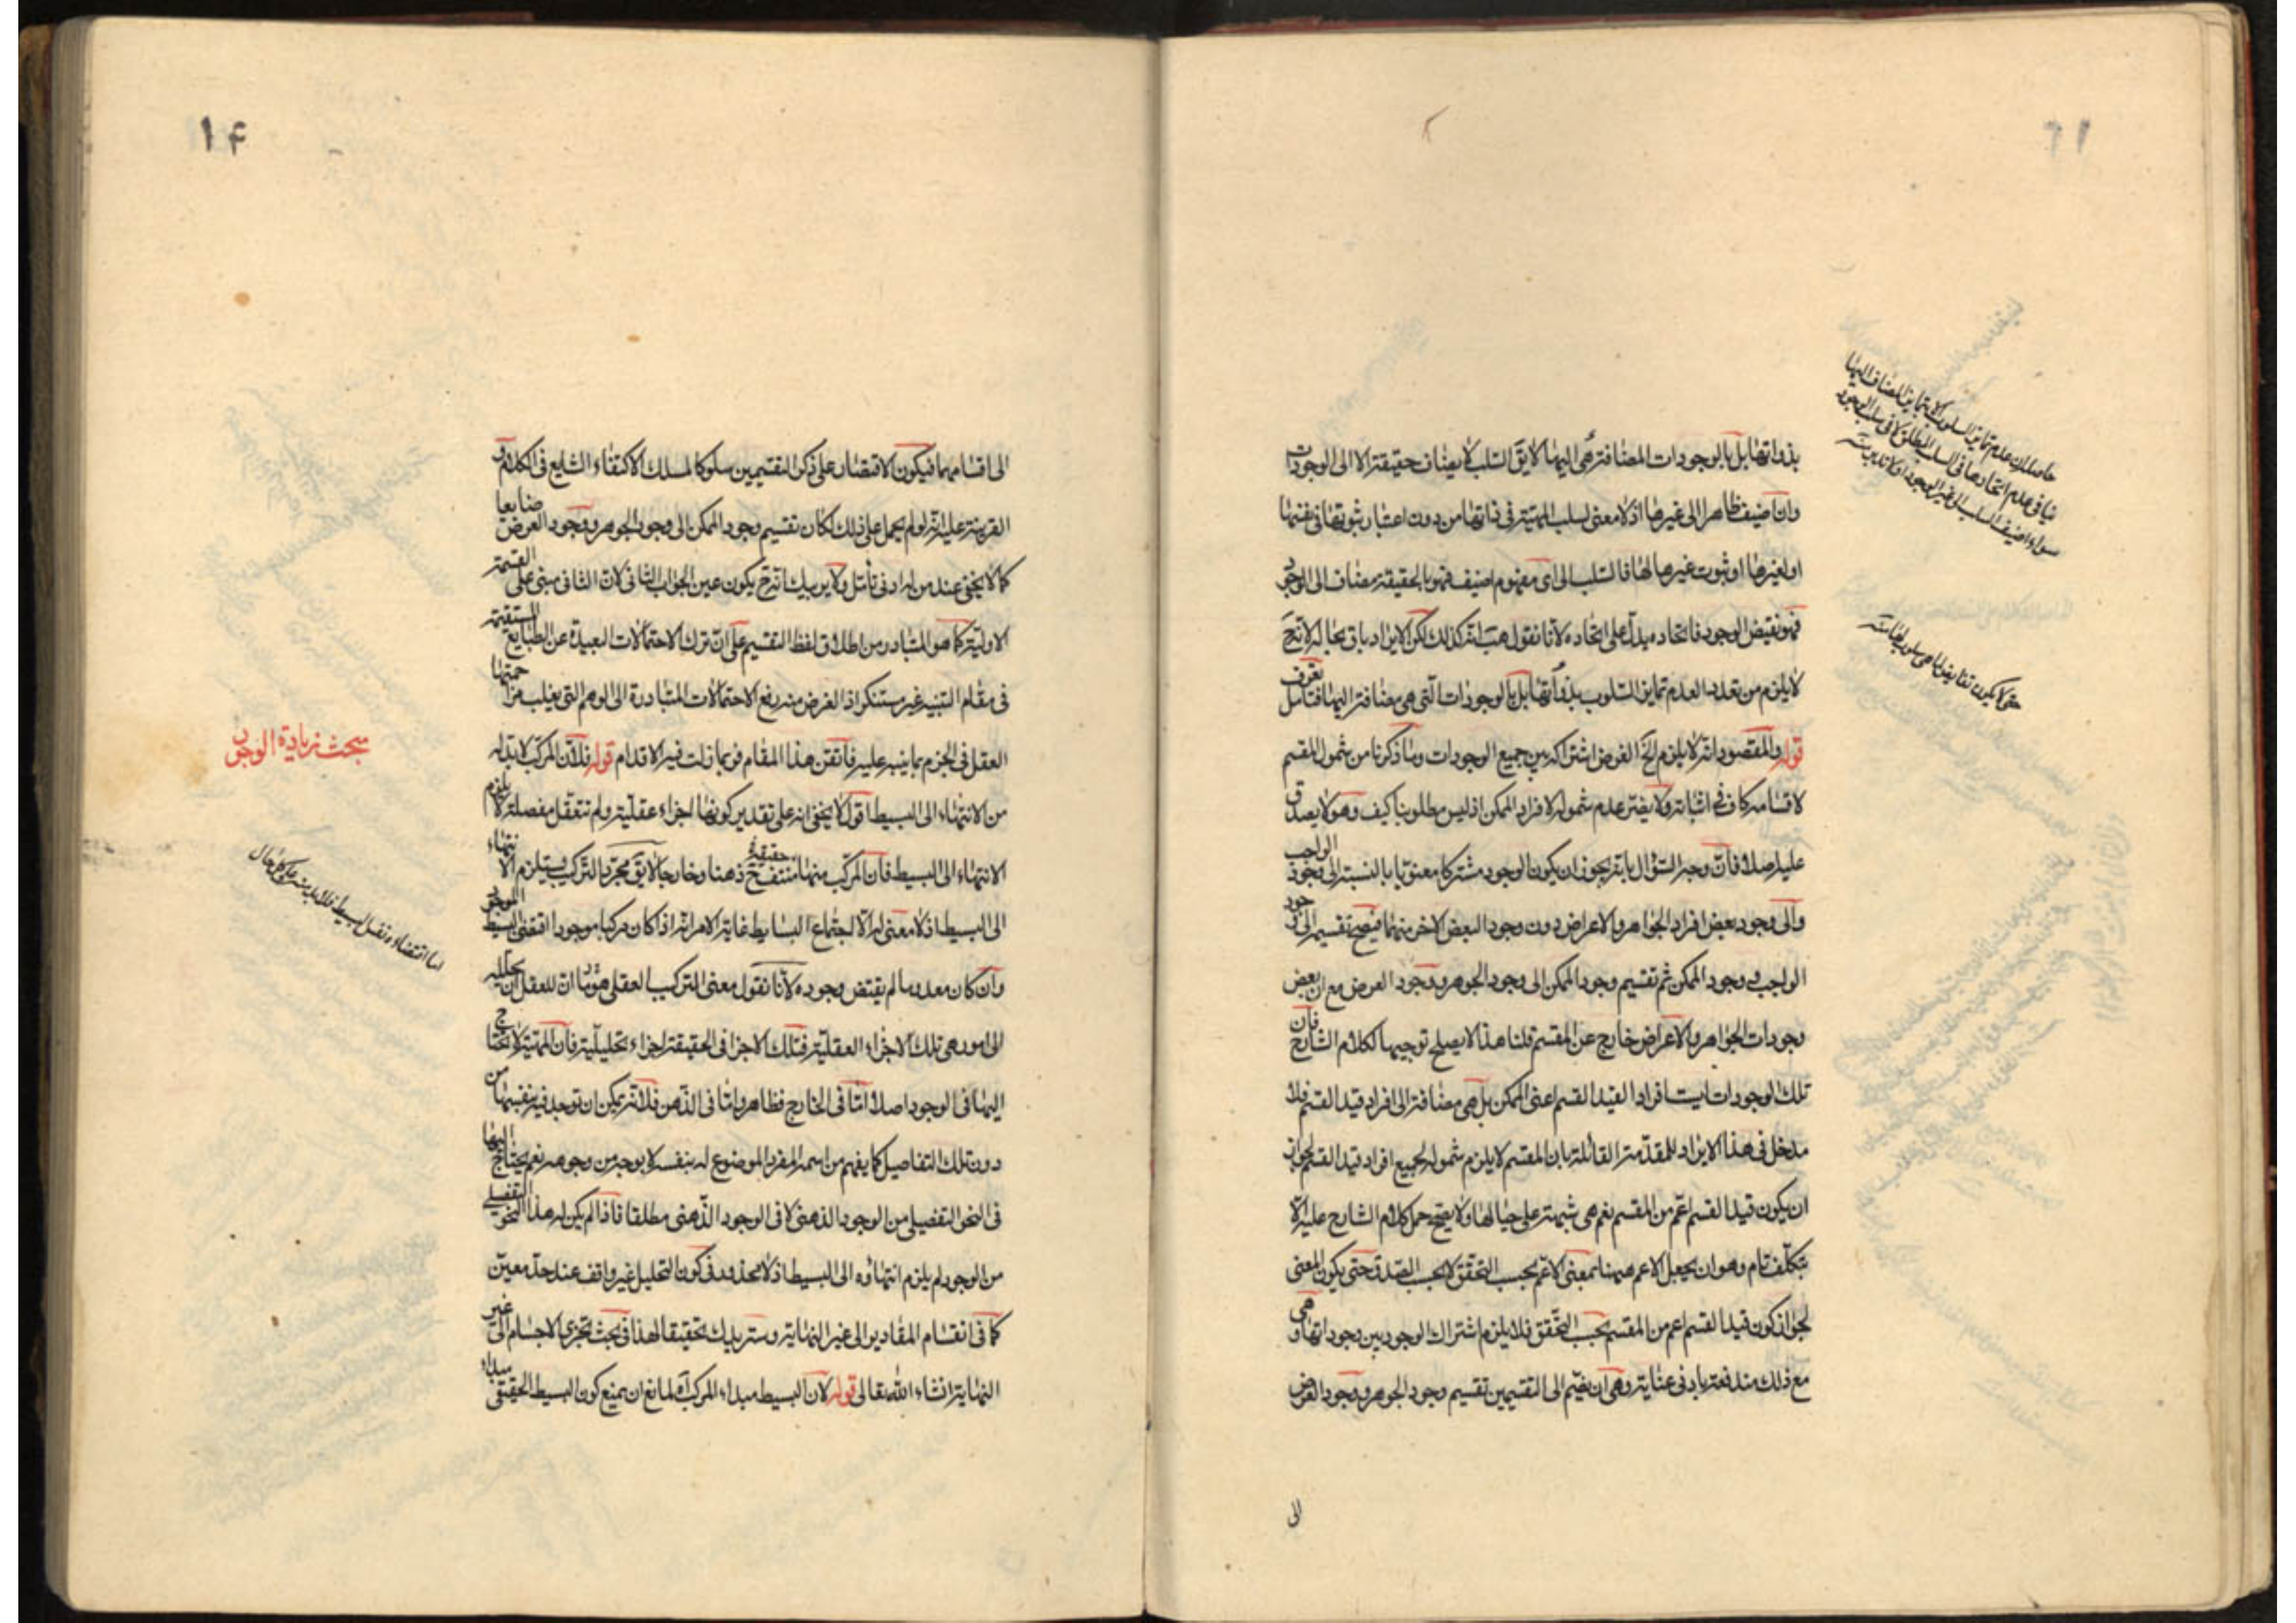 بذواتها بل بالوجودات المضافة هى اليها لا يق السلب لا يضاف حقيقة الا الى الوجودات
وان اضيف ظاهرا الى غيرها اذ لا معنى لسلب المهية فى ذاتها من دون اعتبار ثبوتها فى نفسها
او لغيرها او ثبوت غيرها لها فالسلب الى اى مفهوم اضيف فهو بالحقيقة مضاف الى الوجود
فهو نقيض الوجود فاتحاده يدل على اتحاده لانا نقول هب انه كذلك لكن الايراد باق بحاله لانه ح
لا يلزم من تعدد العدم تمايز السلوب بذواتها بل بالوجودات التى هى مضافة اليها فتأمل تعرف
قوله والمقصود انه لا يلزم الخ الغرض اشتراكه بين جميع الوجودات وما ذكرنا من شمول المقسم
لاقسامه كاف فى اثباته ولا يضر عدم شموله لافراد الممكن اذ ليس مطلوبنا كيف وهو لا يصدق
عليه اصلا فان وجه السؤال بانه يجوز ان يكون الوجود مشتركا معنويا بالنسبة الى وجود الواجب
والى وجود بعض افراد الجواهر والاعراض دون وجود البعض الاخر منهما فيصح تقسيم الى وجود
الواجب و وجود الممكن ثم تقسيم وجود الممكن الى وجود الجوهر ووجود العرض مع ان بعض
وجودات الجواهر والاعراض خارج عن المقسم قلنا هذا لا يصلح توجيها لكلام الشارح فان
تلك الوجودات ليست افرادا لقيد القسم اعنى الممكن بل هى مضافة الى افراد قيد القسم فلا
مدخل فى هذا الايراد للمقدمة القائلة بان المقسم لا يلزم شموله لجميع افراد قيد القسم لجواز
ان يكون قيد القسم اعم من المقسم نعم هى شبهة على حيالها ولا يصح حمل كلام الشارح عليه الا
بتكلف تام وهو ان يجعل الاعم ههنا بمعنى الاعم بحسب التحقق لا بحسب الصدق حتى يكون المعنى
لجواز كون قيد القسم اعم من المقسم بحسب التحقق فلا يلزم اشتراك الوجود بين وجوداتها وهى
مع ذلك مندفعة بادنى عناية وهى ان يضم الى التقسيمين تقسيم وجود الجوهر ووجود العرض
الى
حاصله ان عدم تمايز السلوب الا بتمايز المضاف اليها
ينافى عدم اتحادها فى السلب المطلق لا فى سلب الوجود
سواء اضيف السلب الى غير الوجود او لا
۱۴
الى اقسامهما فيكون الاقتصار على ذكر التقسيمين سلوكا لمسلك الاكتفاء الشايع فى الكلام و
القرينة عليه انه لو لم يحمل على ذلك لكان تقسيم وجود الممكن الى وجود الجوهر ووجود العرض ضايعا
كما لا يخفى عند من له ادنى تأمل ولا يريبك انه ح يكون عين الجواب الثانى لان الثانى مبنى على القسمة
الاولية كما هو المتبادر من اطلاق لفظ التقسيم على ان ترك الاحتمالات البعيدة عن الطبايع المستقيمة
فى مقام التنبيه غير مستنكر اذ الغرض منه رفع الاحتمالات المتبادرة الى الوهم التى يغلب مزاحمتها
العقل فى الجزم بما ينبه عليه فاتقن هذا المقام فربما زلت فيه الاقدام قوله فلان المركب لا بد له
من الانتهاء الى البسيط اقول لا يخفى انه على تقدير كونها اجزاء عقلية ولم تتعقل مفصلة لا يلزم
الانتهاء الى البسيط فان المركب منها منتف ح ذهنا وخارجا لا يق مجرد التركيب يستلزم الانتهاء
حقيقة
الى البسيط اذ لا معنى له الا اجتماع البسايط غاية الامر انه اذا كان مركبا موجودا اقتضى البسيط الموجود
وان كان معدوما لم يقتض وجوده لانا نقول معنى التركيب العقلى هو ان للعقل ان يحلله
الى امور هى تلك الاجزاء العقلية فتلك الاجزا فى الحقيقة اجزاء تحليلية فان المهية لا تحتاج
اليها فى الوجود اصلا اما فى الخارج فظاهر واما فى الذهن فلانه يمكن ان توجد فيه بنفسها من
دون تلك التفاصيل كما يفهم من اسمه المفرد الموضوع له بنفسه لا بوجه من وجوهه نعم يحتاج اليها
فى النحو التفصيلى من الوجود الذهنى لا فى الوجود الذهنى مطلقا فاذا لم يكن له هذا النحو التفصيلى
من الوجود لم يلزم انتهاؤه الى البسيط اذ لا محذور فى كون التحليل غير واقف عند حد معين
كما فى انقسام المقادير الى غير النهاية وسنزيدك تحقيقا لهذا فى بحث تجزى الاجسام الى غير
النهاية انشاء الله تعالى قوله لان البسيط مبداء المركب لمانع ان يمنع كون البسيط الحقيقى مبداء
مبحث زيادة الوجود
اما اقتضاء تعقل البسيط فلا بد منه على كل حال